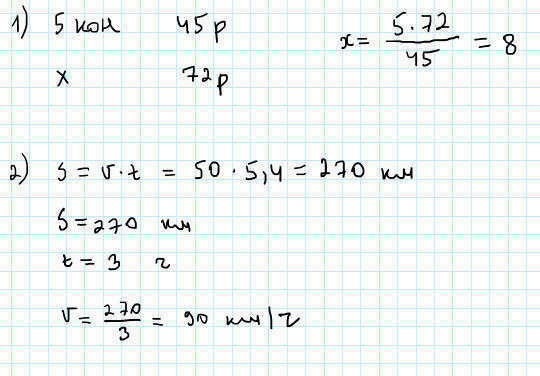 1) 5 кон 45 р x = 5·72/45 = 8
x 72 р
2) S = v·t = 50·5,4 = 270 км
S = 270 км
t = 3 ч
v = 270/3 = 90 км/ч